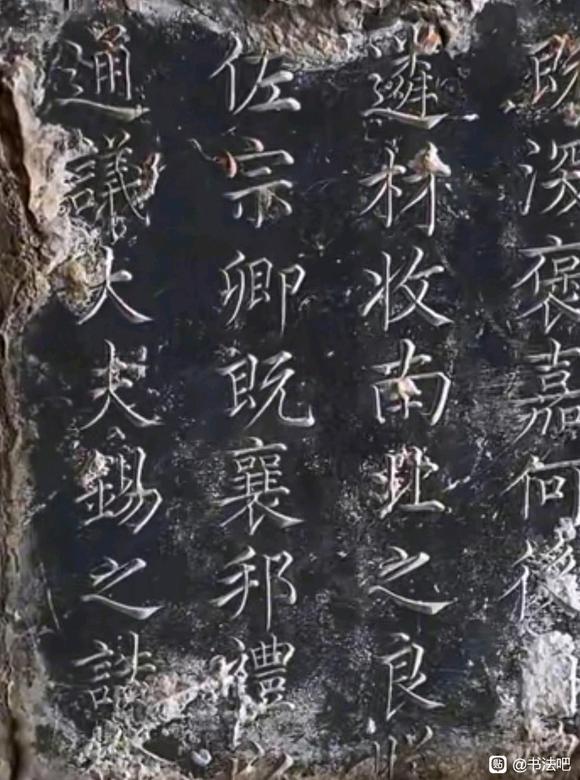 既深褒嘉何後
遴材收南北之良
佐宗卿既襄邦禮以
通議大夫錫之誥
@书法吧